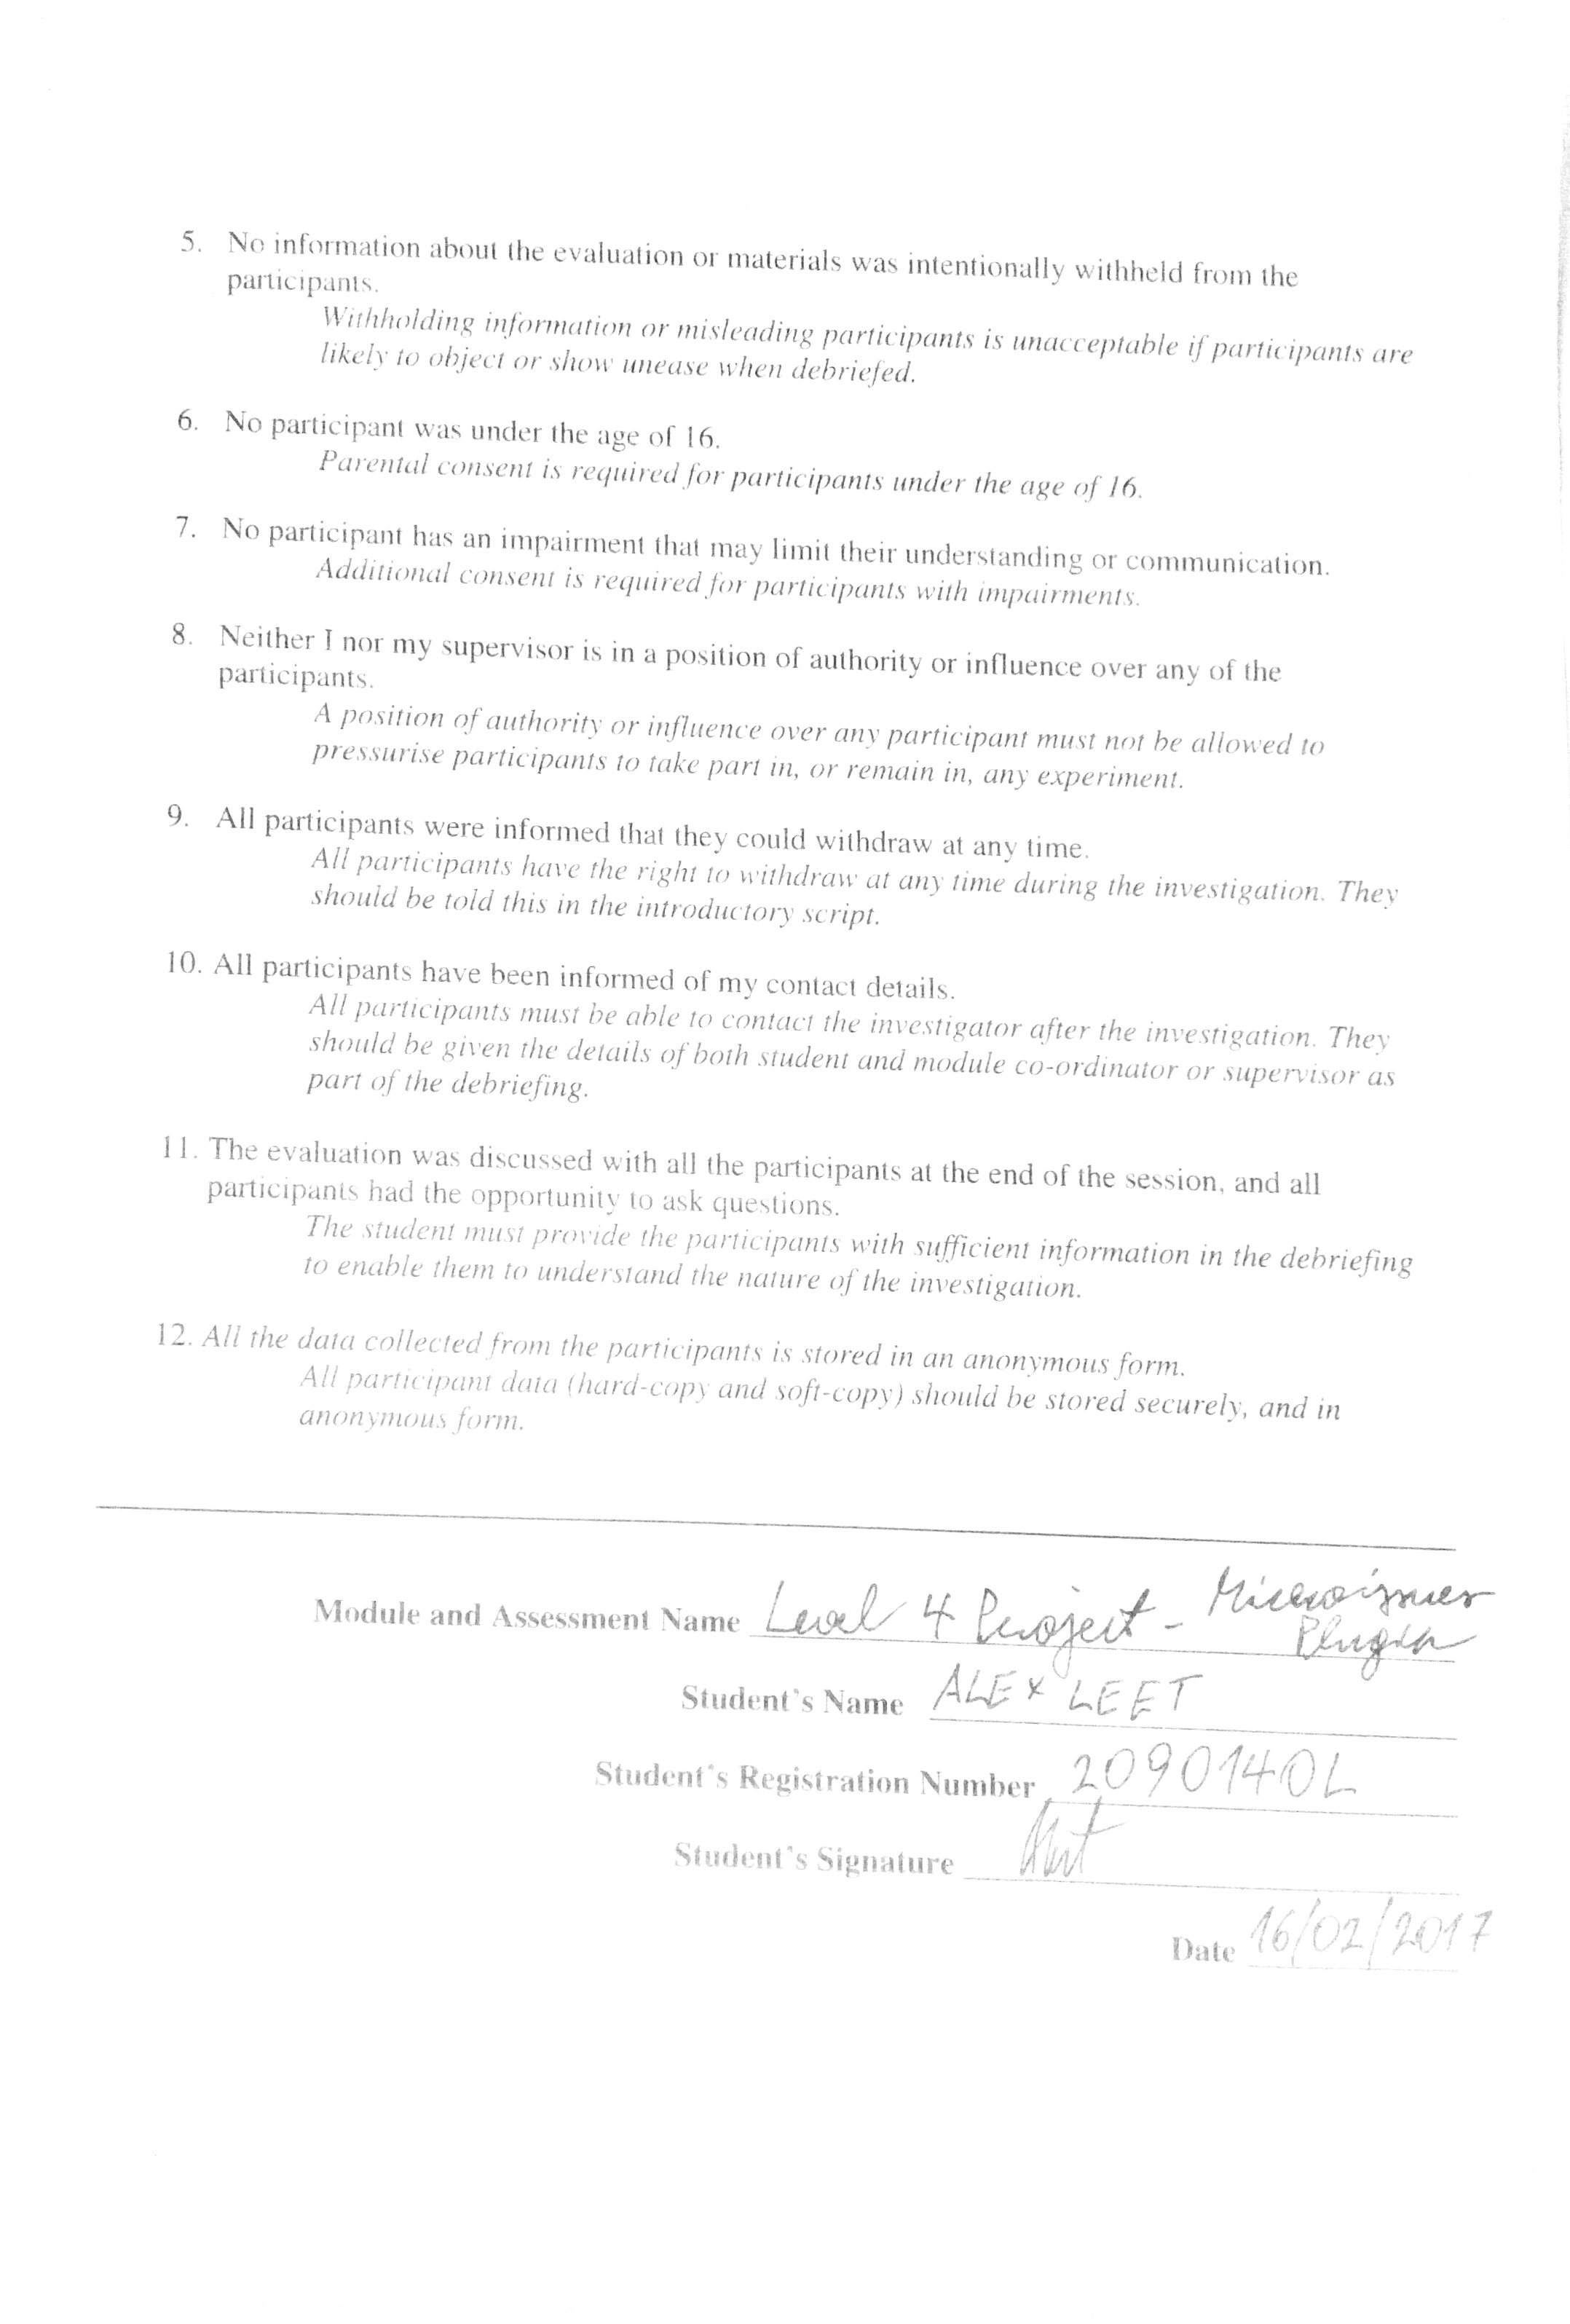 5. No information about the evaluation or materials was intentionally withheld from the
participants.
Withholding information or misleading participants is unacceptable if participants are
likely to object or show unease when debriefed.
6. No participant was under the age of 16.
Parental consent is required for participants under the age of 16.
7. No participant has an impairment that may limit their understanding or communication.
Additional consent is required for participants with impairments.
8. Neither I nor my supervisor is in a position of authority or influence over any of the
participants.
A position of authority or influence over any participant must not be allowed to
pressurise participants to take part in, or remain in, any experiment.
9. All participants were informed that they could withdraw at any time.
All participants have the right to withdraw at any time during the investigation. They
should be told this in the introductory script.
10. All participants have been informed of my contact details.
All participants must be able to contact the investigator after the investigation. They
should be given the details of both student and module co-ordinator or supervisor as
part of the debriefing.
11. The evaluation was discussed with all the participants at the end of the session, and all
participants had the opportunity to ask questions.
The student must provide the participants with sufficient information in the debriefing
to enable them to understand the nature of the investigation.
12. All the data collected from the participants is stored in an anonymous form.
All participant data (hard-copy and soft-copy) should be stored securely, and in
anonymous form.
Module and Assessment Name Level 4 Project - Microissues
Plugin
Student's Name ALEX LEET
Student's Registration Number 2090140L
Student's Signature
Date 16/02/2017